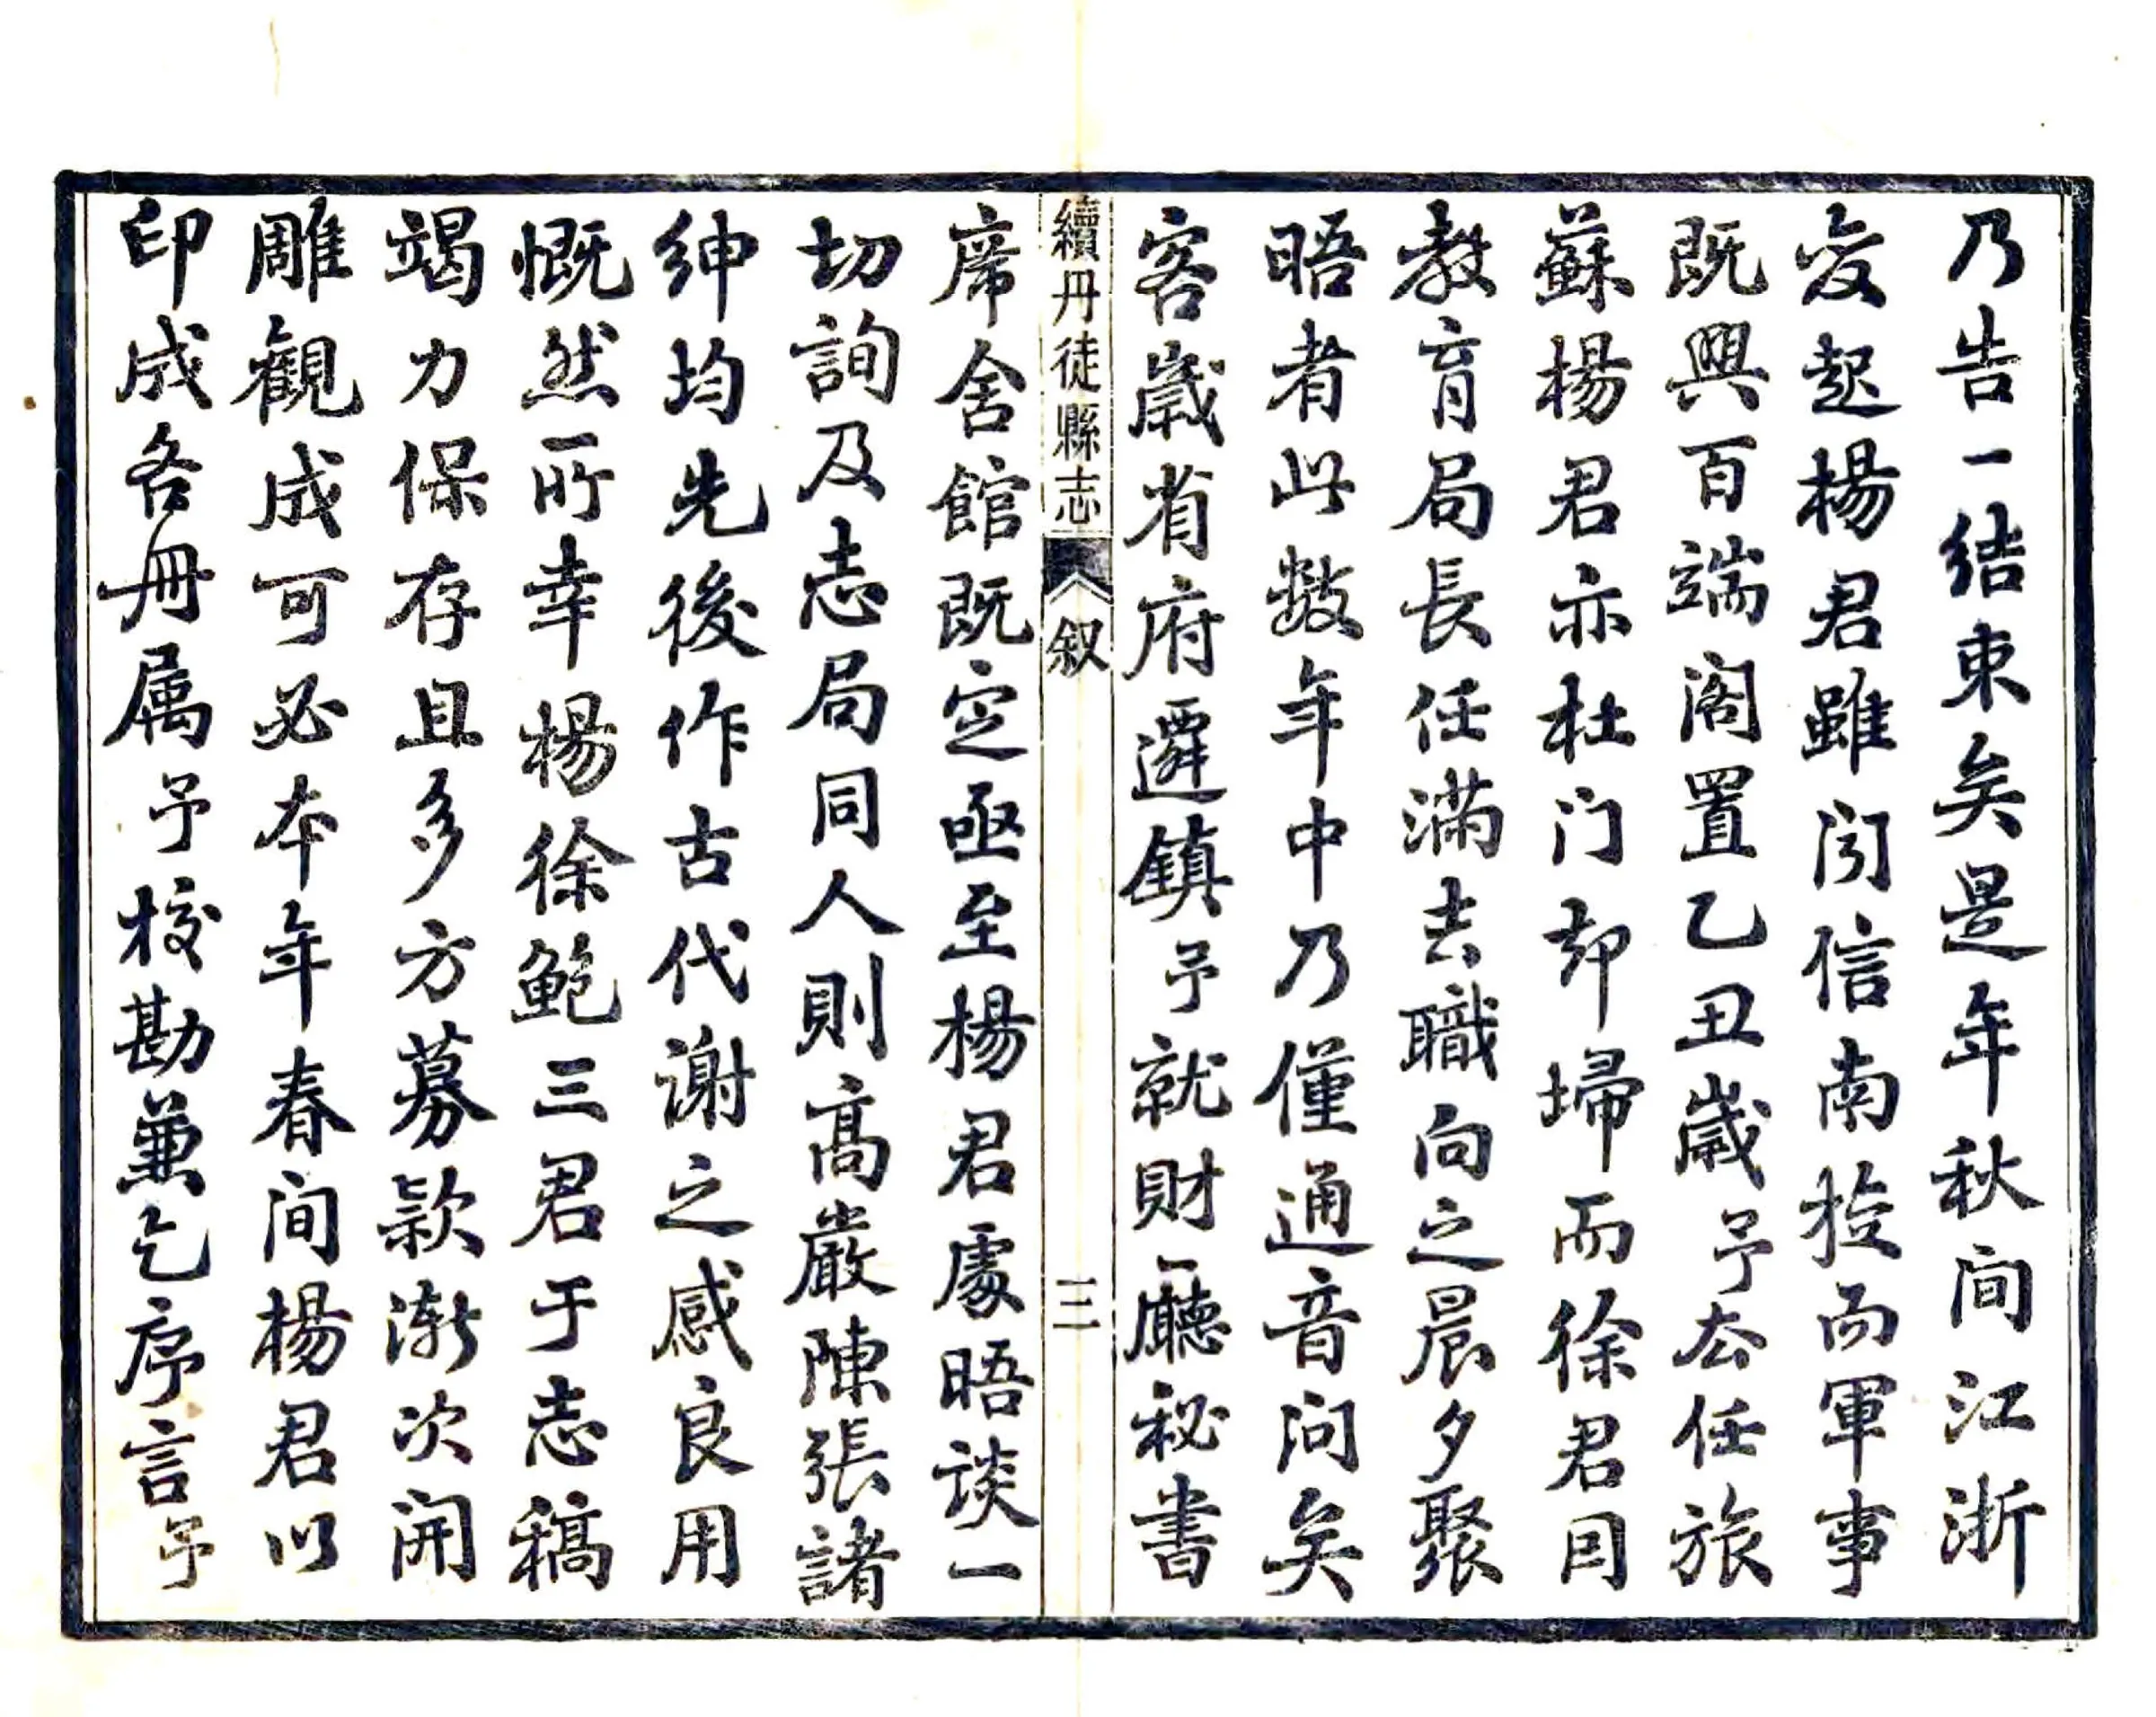 乃告一結束矣是年秋间江浙
变起楊君雖閉信南撿而軍事
既興百端阁置乙丑歲予去任旅
蘇楊君亦杜门却埽而徐君因
教育局長任滿去職向之晨夕聚
晤者此数年中乃僅通音问矣
客歲省府遷鎮予就財廳秘書
續丹徒縣志 叙 三
席舍館既定亟至楊君處晤谈一
切詢及志局同人則高嚴陳張諸
紳均先後作古代謝之感良用
慨然所幸楊徐鲍三君于志稿
竭力保存且多方募欵漸次開
雕觀成可必本年春间楊君以
印成各册属予校勘兼乞序言予